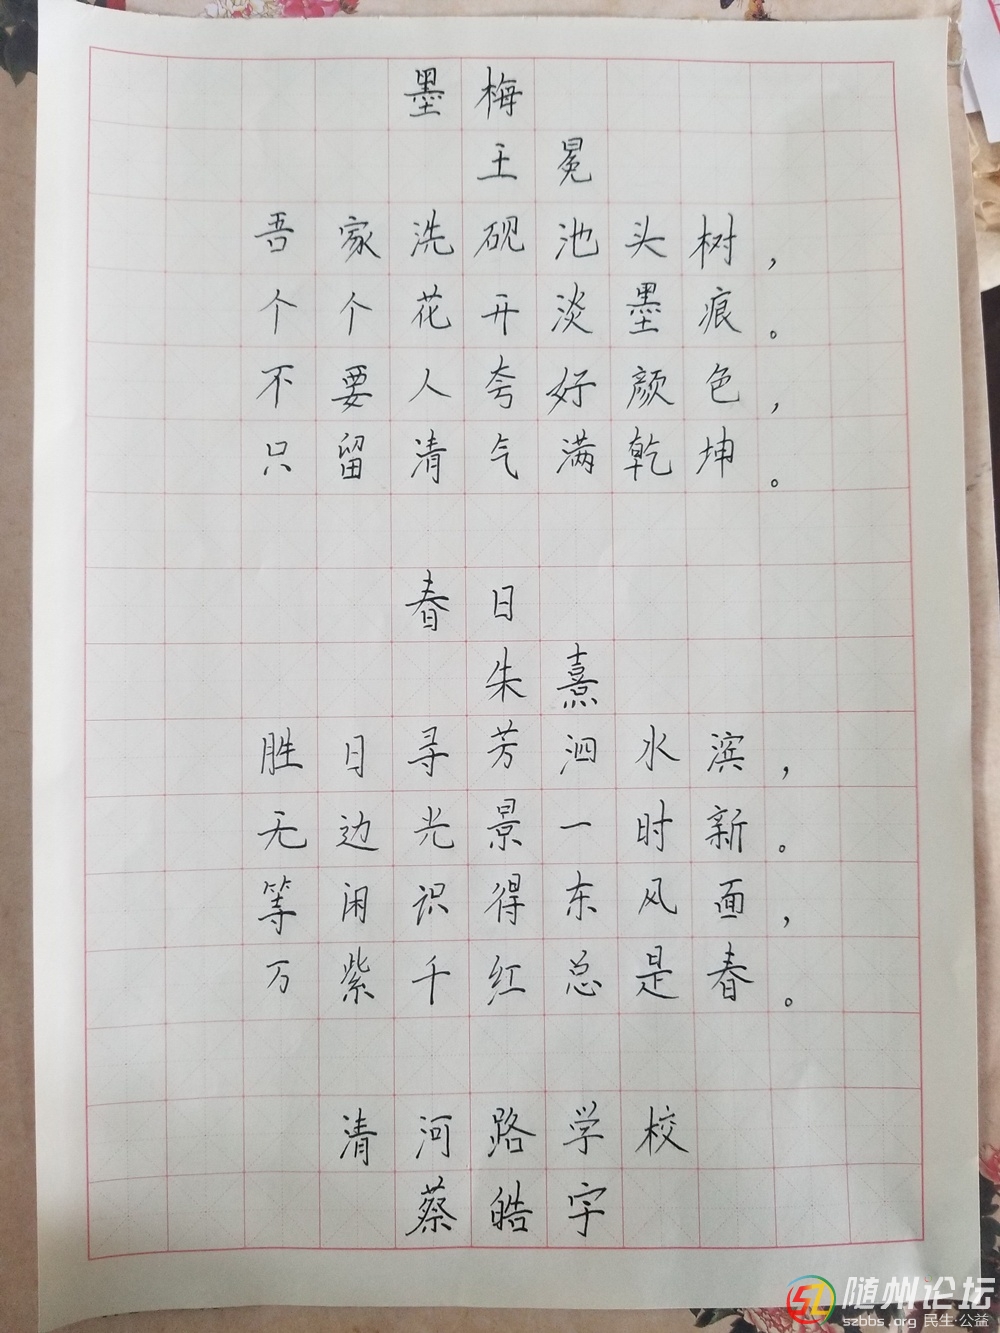 墨梅
王冕
吾家洗砚池头树，
个个花开淡墨痕。
不要人夸好颜色，
只留清气满乾坤。
春日
朱熹
胜日寻芳泗水滨，
无边光景一时新。
等闲识得东风面，
万紫千红总是春。
清河路学校
蔡皓宇
随州论坛
szbbs.org 民生·公益